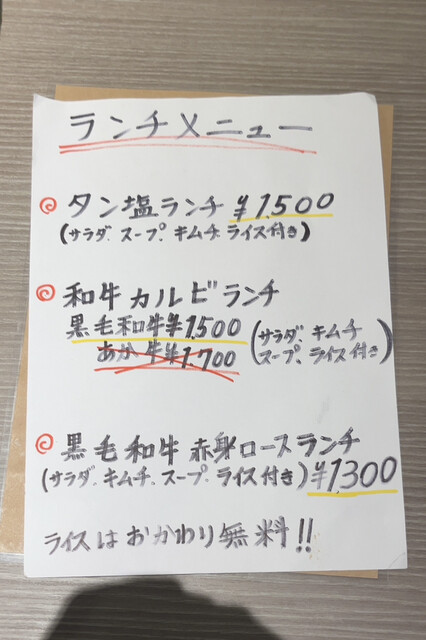 ランチメニュー
タン塩ランチ ¥1,500
(サラダ、スープ、キムチ、ライス付き)
和牛カルビランチ
黒毛和牛¥1,500
あか牛¥1,700
(サラダ、キムチ
スープ、ライス付き)
黒毛和牛赤身ロースランチ
(サラダ、キムチ、スープ、ライス付き)¥1,300
ライスはおかわり無料!!